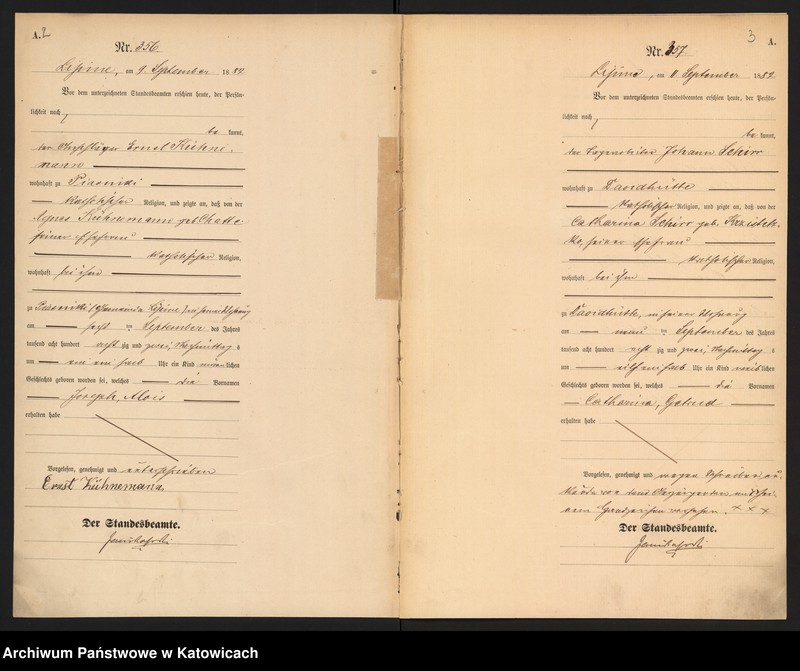 A. 2
Nr. 356.
Lipine, am 9. September 1882
Vor dem unterzeichneten Standesbeamten erschien heute, der Persön-
lichkeit nach
be kannt,
der Ernst Kühne-
mann
wohnhaft zu Piasniki
katholischer Religion, und zeigte an, daß von der
Agnes Kühnemann geb.
seiner Ehefrau
katholischer Religion,
wohnhaft bei ihm
zu Piasniki (Gemeinde Lipine) in seiner Wohnung
am September des Jahres
tausend acht hundert acht zig und zwei, Nachmittag s
um ein halb Uhr ein Kind männlichen
Geschlechts geboren worden sei, welches die Vornamen
Joseph, Alois
erhalten habe
Vorgelesen, genehmigt und unterschrieben
Ernst Kühnemann
Der Standesbeamte.
3 A.
Nr. 357
Lipine, am September 1882
Vor dem unterzeichneten Standesbeamten erschien heute, der Persön-
lichkeit nach
be kannt,
der Tagearbeiter Johann Schirr
wohnhaft zu Davidhütte
katholischer Religion, und zeigte an, daß von der
Catharina Schirr geb.
seiner Ehefrau
katholischer Religion,
wohnhaft bei ihm
zu Davidhütte, in seiner Wohnung
am neun ten September des Jahres
tausend acht hundert acht zig und zwei, Nachmittag s
um Uhr ein Kind weiblichen
Geschlechts geboren worden sei, welches die Vornamen
Catharina, Getrud
erhalten habe
Vorgelesen, genehmigt und wegen Schreibens un-
kunde von dem
Handzeichen versehen. + + +
Der Standesbeamte.
Archiwum Państwowe w Katowicach